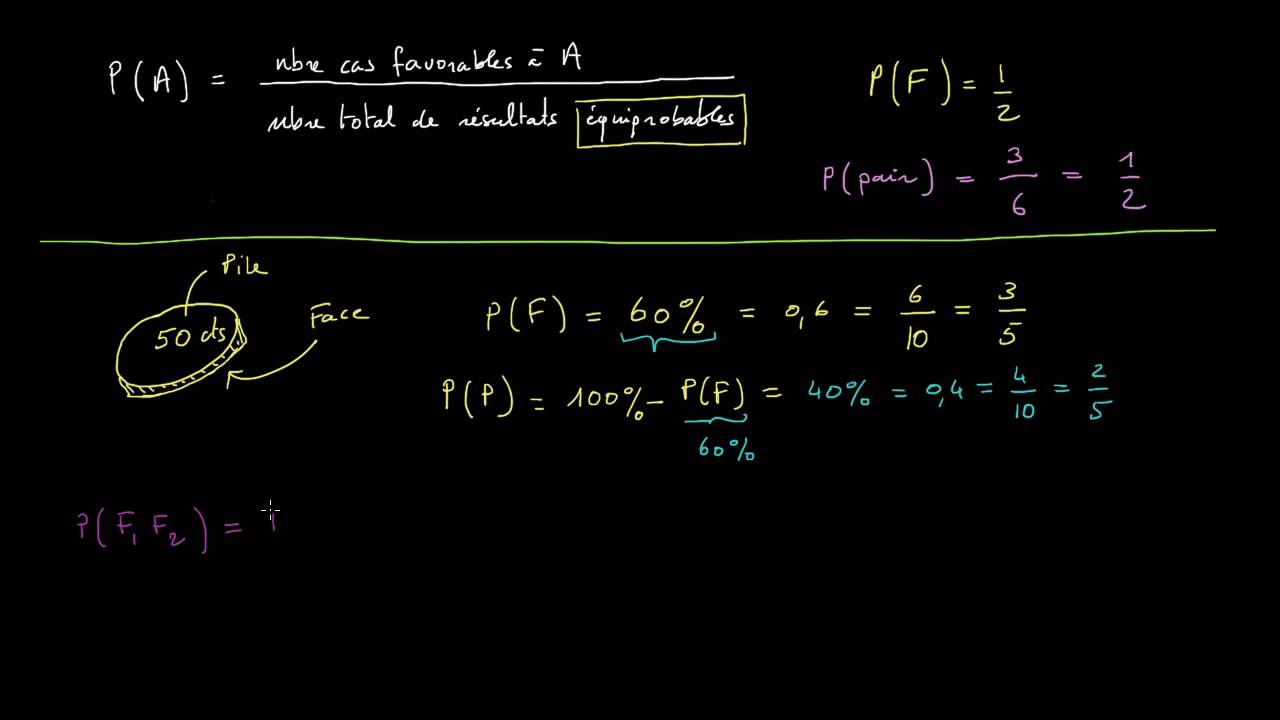 P(A) = nbre cas favorables à A / nbre total de résultats équiprobables
P(F) = 1/2
P(pair) = 3/6 = 1/2
Pile
50 cts
Face
P(F) = 60% = 0,6 = 6/10 = 3/5
P(P) = 100% - P(F) = 40% = 0,4 = 4/10 = 2/5
60%
P(F₁ F₂) =